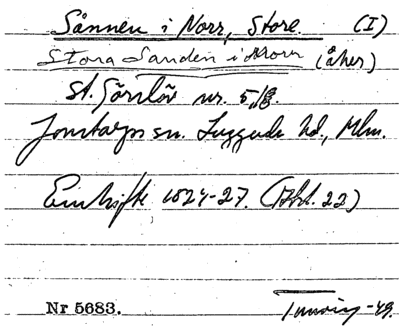 Sånnen i Norr, Store. (I)
Stora Sanden i Norr (åker)
St. Görslöv nr. 5,8.
Jonstorps sn. Luggude hd, Mlm.
Enskifte 1824-27. (Akt. 22)
Nr 5683. -49.